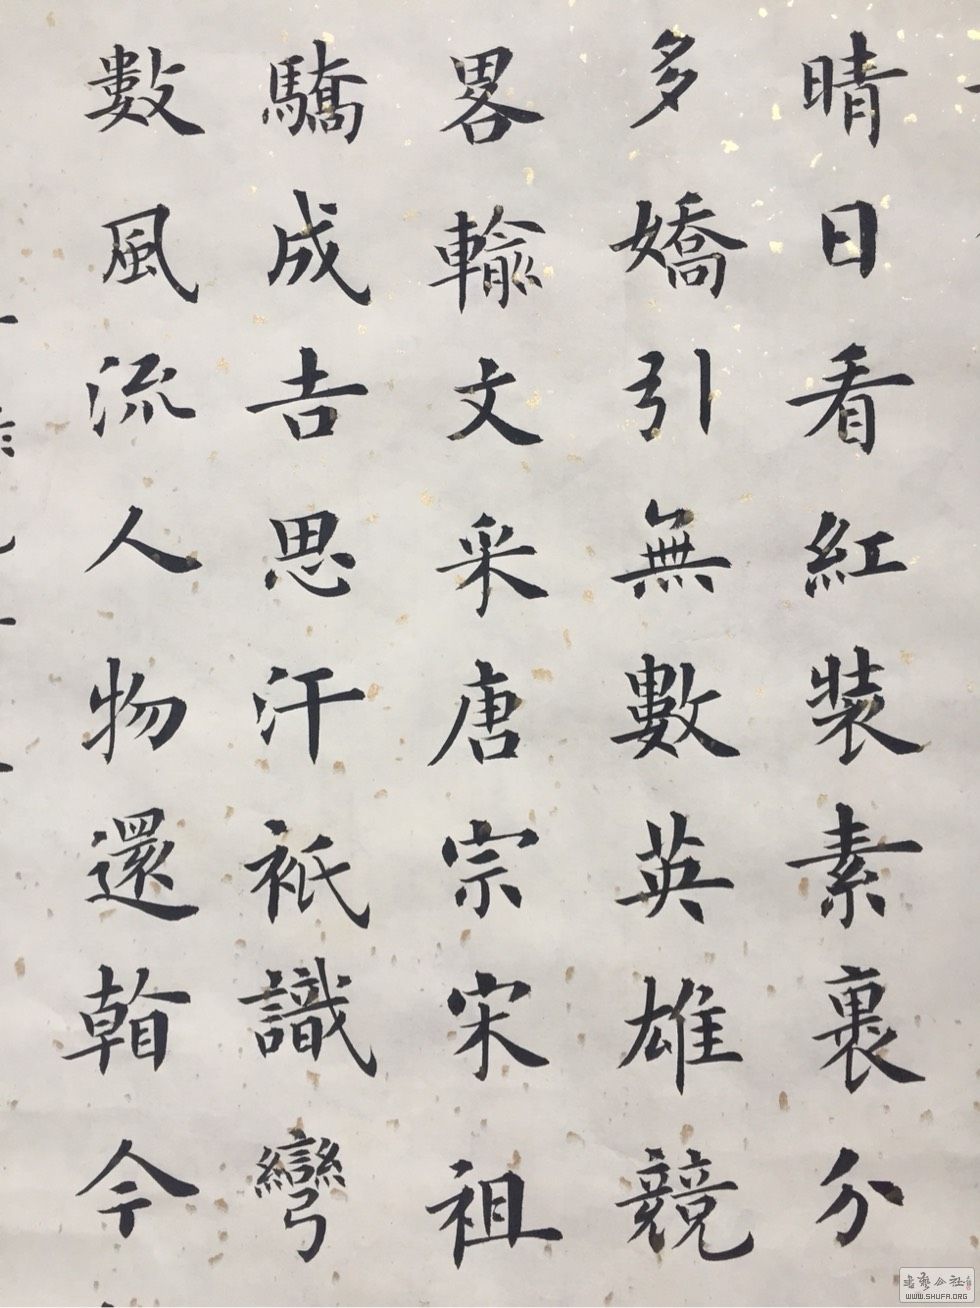 晴日看紅裝素裹分
多嬌引無數英雄競
畧輸文采唐宗宋祖
驕成吉思汗衹識彎
數風流人物還看今
WWW.SHUFA.ORG